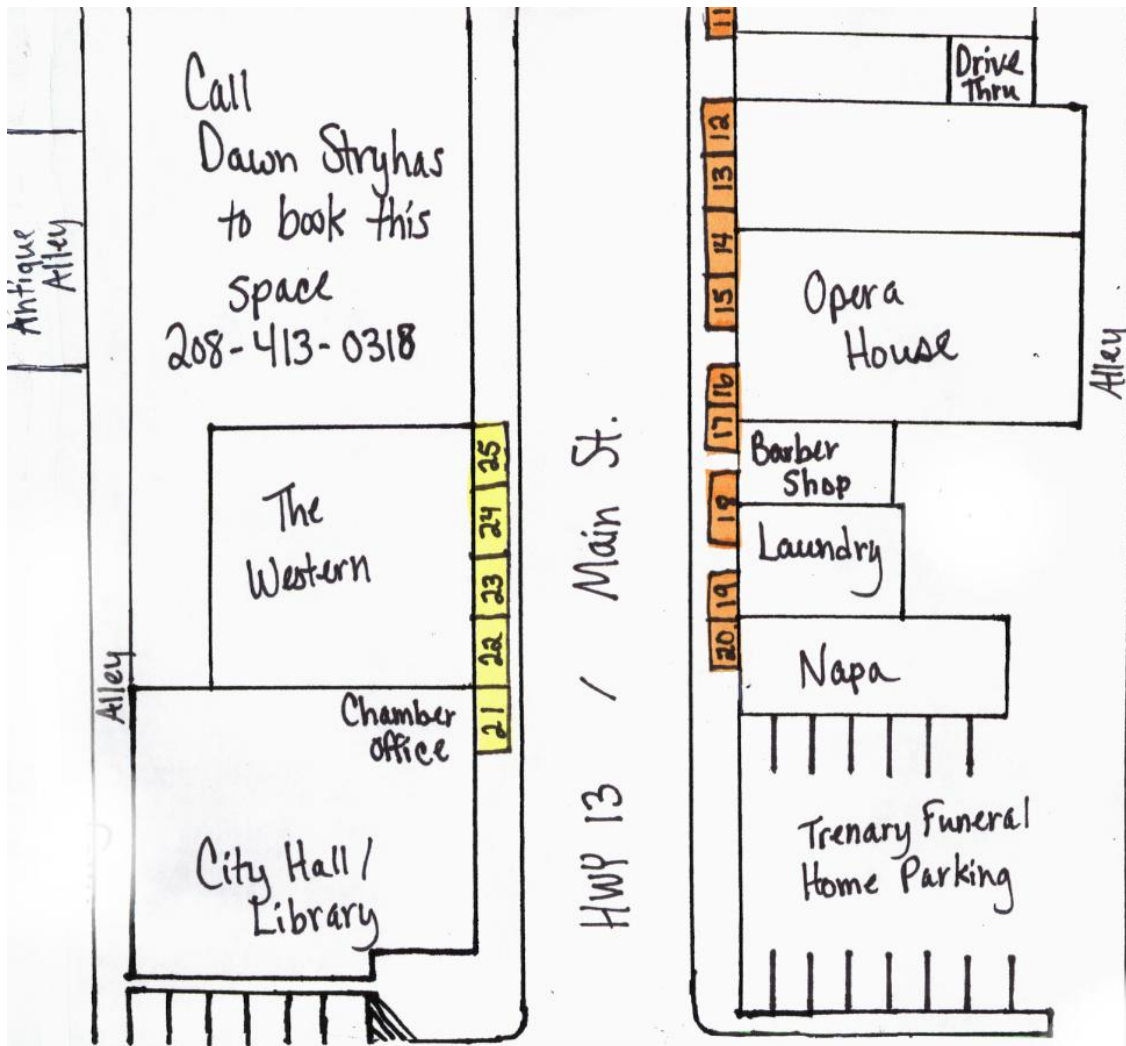 Call
Dawn Stryhas
to book this
space
208-413-0318
Antique
Alley
The
Western
Alley
Chamber
Office
City Hall /
Library
25
24
23
22
21
HWY 13 / Main St.
11
12
13
14
15
16
17
18
19
20
Drive
Thru
Opera
House
Alley
Barber
Shop
Laundry
Napa
Trenary Funeral
Home Parking